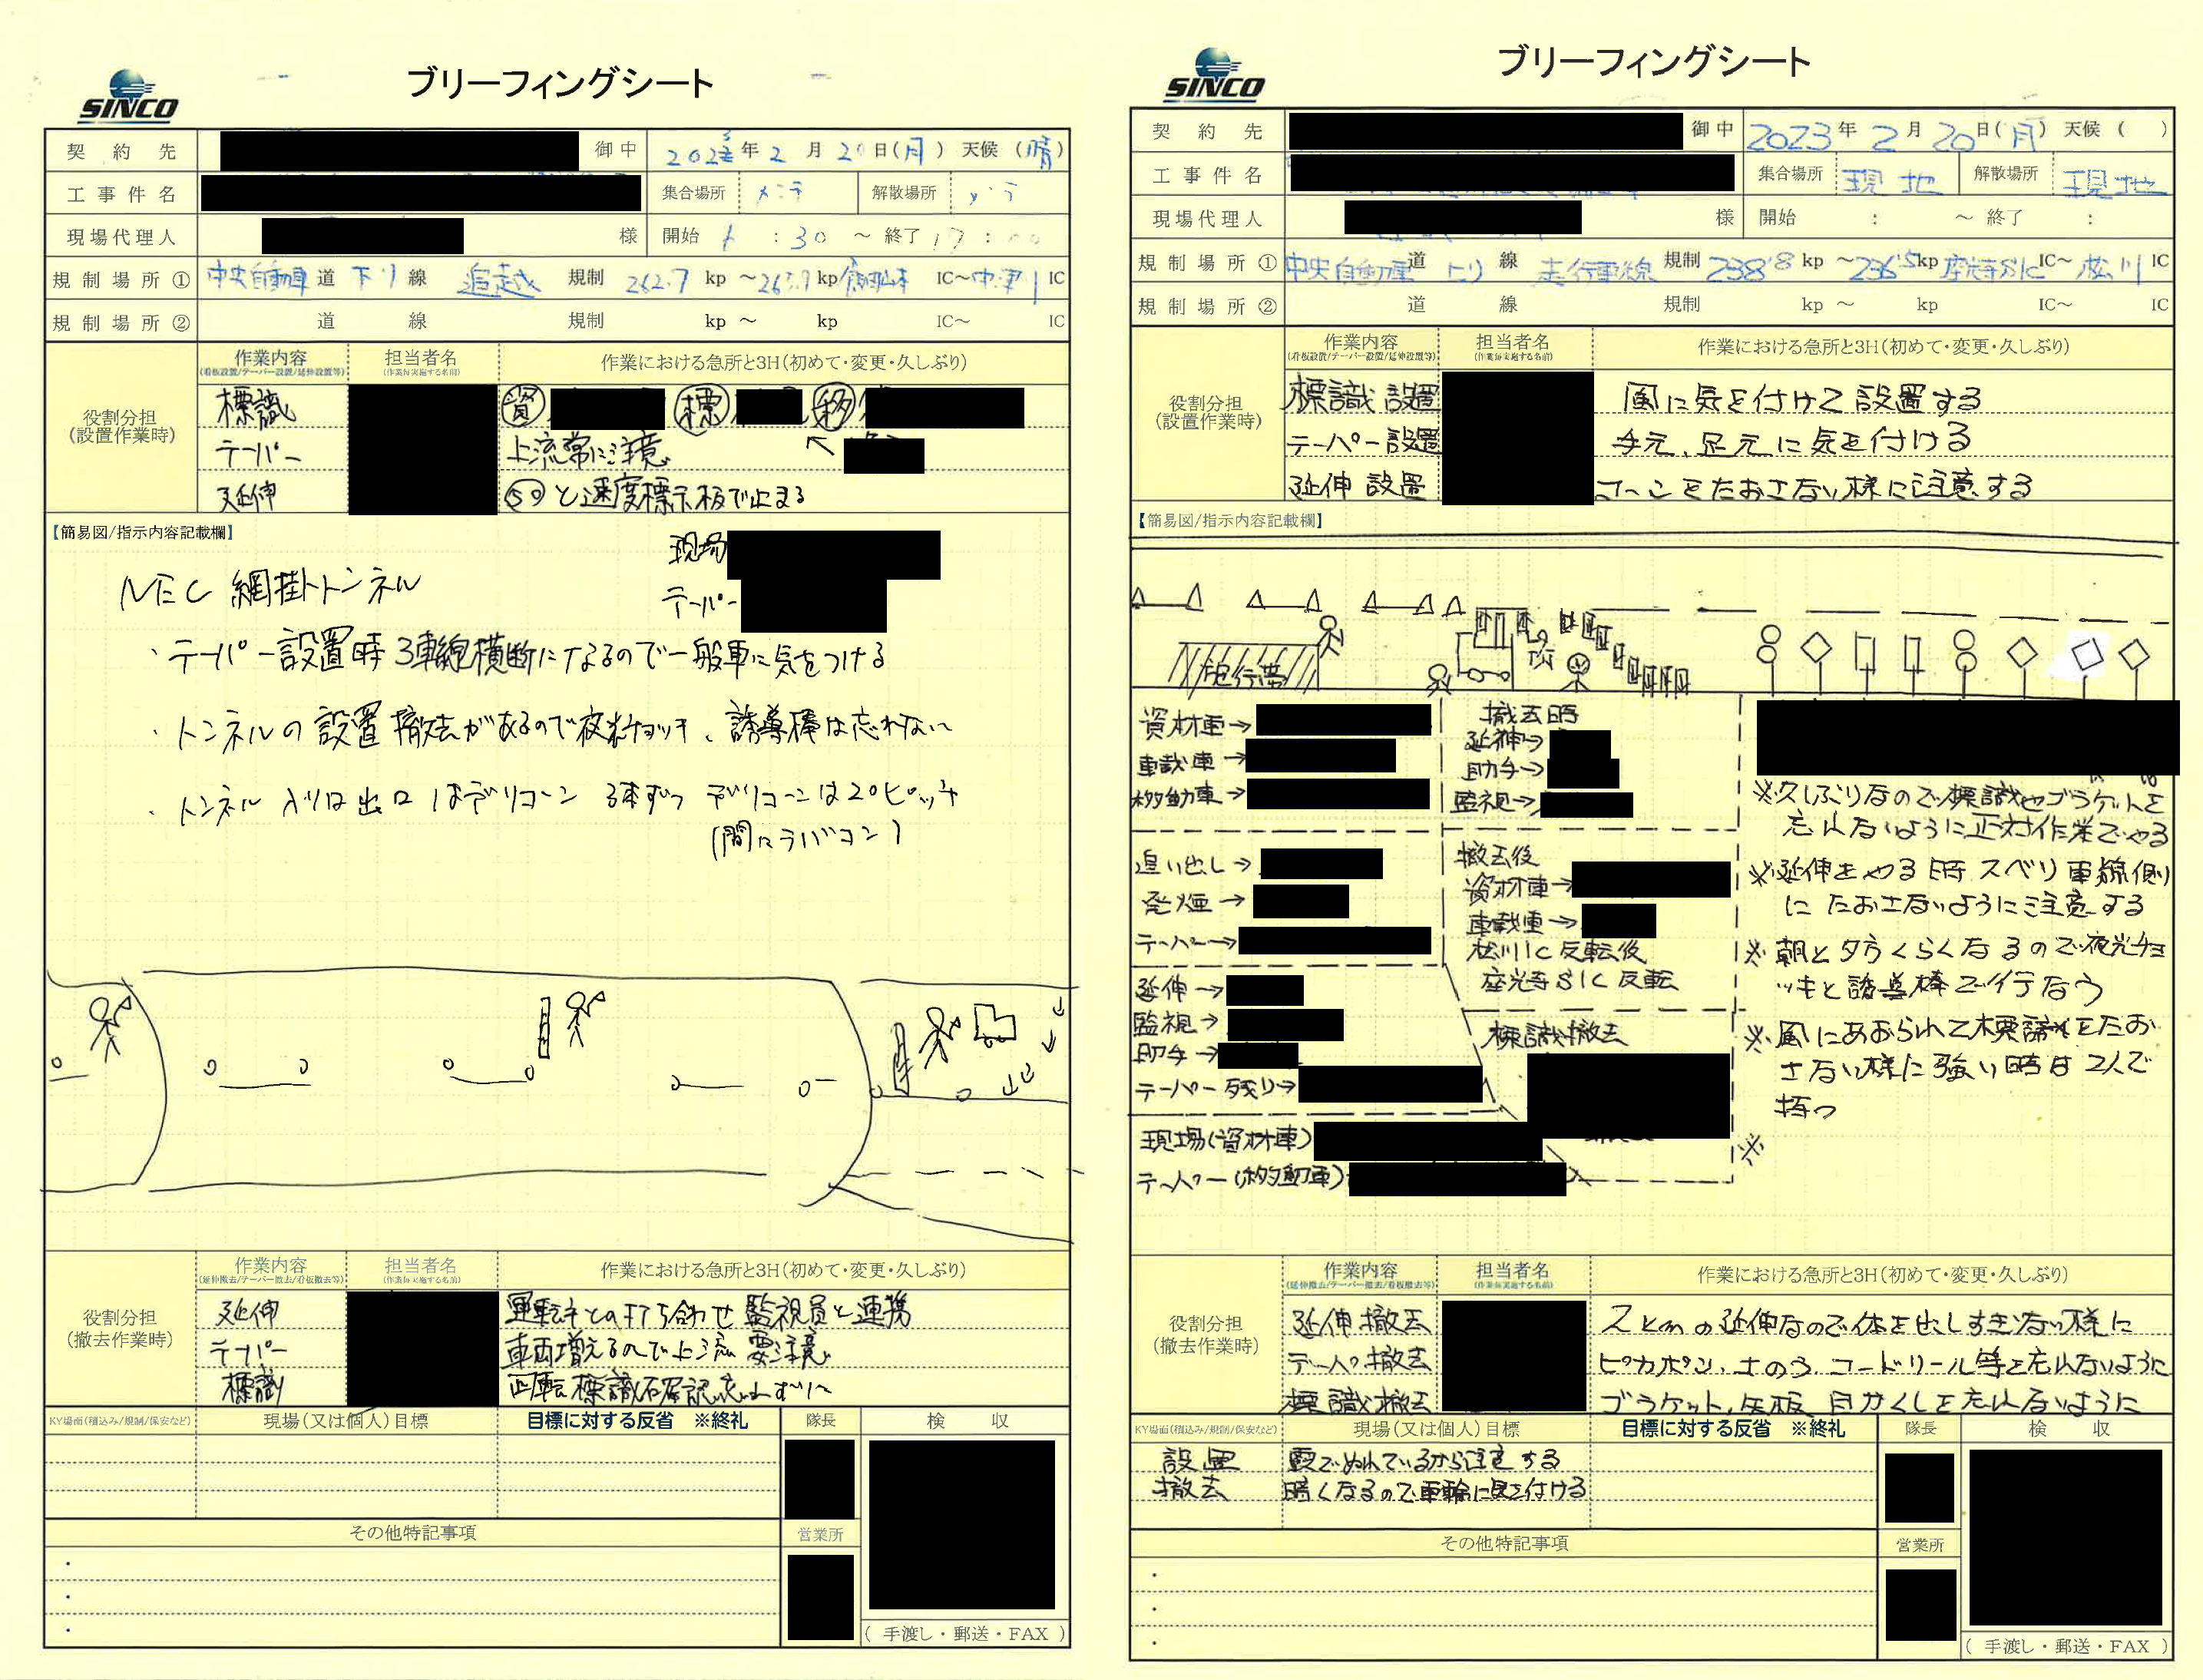 SINCO
ブリーフィングシート
契約先 御中 2023年2月20日(月) 天候(晴)
工事件名 集合場所 メンテ 解散場所 メンテ
現場代理人 様 開始 :30 ~ 終了 17:00
規制場所① 中央自動車道 下り線 追越 規制 262.7 kp ~ kp 飯田山本 IC~中津川IC
規制場所② 道 線 規制 kp ~ kp IC~ IC
役割分担(設置作業時)
作業内容(看板設置/テーパー設置/延伸設置等) 担当者名(作業毎実施する名前) 作業における急所と3H(初めて・変更・久しぶり)
標識 資 標 移
テーパー 上流常に注意
延伸 50と速度標示板で止まる
【簡易図/指示内容記載欄】
現場
テーパー
NEC 網掛トンネル
・テーパー設置時 3車線横断になるので一般車に気をつける
・トンネルの設置撤去があるので夜光チョッキ、誘導棒は忘れない
・トンネル入り口出口はデリコーン 3本ずつ デリコーンは20ピッチ
(間にラバコン)
役割分担(撤去作業時)
作業内容(延伸撤去/テーパー撤去/看板撤去等) 担当者名(作業毎実施する名前) 作業における急所と3H(初めて・変更・久しぶり)
延伸 運転手との打ち合わせ 監視員と連携
テーパー 車両増えるので上流 要注意
標識 回転標識石確認忘れずに
KY場面(積込み/規制/保安など) 現場(又は個人)目標 目標に対する反省 ※終礼 隊長 検収
その他特記事項 営業所
・
・
・
(手渡し・郵送・FAX)
SINCO
ブリーフィングシート
契約先 御中 2023年2月20日(月) 天候( )
工事件名 集合場所 現地 解散場所 現地
現場代理人 様 開始 : ~ 終了 :
規制場所① 中央自動車道 上り線 走行車線 規制 238.8 kp ~236.5kp 座光寺SIC IC~ 松川 IC
規制場所② 道 線 規制 kp ~ kp IC~ IC
役割分担(設置作業時)
作業内容(看板設置/テーパー設置/延伸設置等) 担当者名(作業毎実施する名前) 作業における急所と3H(初めて・変更・久しぶり)
標識設置 風に気を付けて設置する
テーパー設置 手元、足元に気を付ける
延伸設置 コーンをたおさない様に注意する
【簡易図/指示内容記載欄】
資材車→
車載車→
移動車→
追い出し→
発煙→
テーパー→
延伸→
監視→
助手→
テーパー残り→
現場(資材車)
テーパー(移動車)
撤去時
延伸→
助手→
監視→
撤去後
資材車→
車載車→
松川IC反転後
座光寺SIC反転
標識撤去
※久しぶりなので標識やゴラケットを
忘れないように正対作業でやる
※延伸をやる時スベリ車線側
にたおさないように注意する
※朝と夕方くらくなるので夜光チョ
ッキと誘導棒で行なう
※風にあおられて標識をたお
さない様に強い時は2人で
持つ
※
役割分担(撤去作業時)
作業内容(延伸撤去/テーパー撤去/看板撤去等) 担当者名(作業毎実施する名前) 作業における急所と3H(初めて・変更・久しぶり)
延伸撤去 2kmの延伸なので体を出しすぎない様に
テーパ撤去 ピカポン、土のう、コードリール等を忘れないように
標識撤去 ゴラケット、矢板、目かくしを忘れないように
KY場面(積込み/規制/保安など) 現場(又は個人)目標 目標に対する反省 ※終礼 隊長 検収
設置 霜でぬれているから注意する
撤去 暗くなるので車輪に気を付ける
その他特記事項 営業所
・
・
・
(手渡し・郵送・FAX)